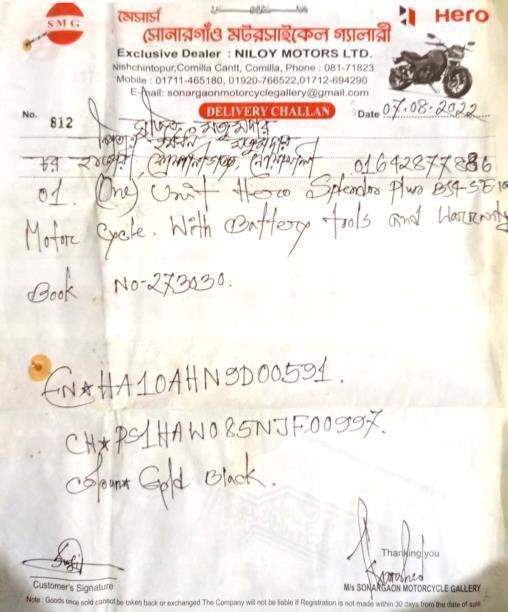 SMG
মেসার্স
সোনারগাঁও মটরসাইকেল গ্যালারী
Hero
Exclusive Dealer : NILOY MOTORS LTD.
Nishchintopur,Comilla Cantt, Comilla, Phone : 081-71823
Mobile : 01711-465180, 01920-766522,01712-694290
E-mail: sonargaonmotorcyclegallery@gmail.com
DELIVERY CHALLAN
No. 812
Date 07.08.2022
মজুমদার
মজুমদার
01642877886
01. (One) Unit Hero Splendor Plus
Motor Cycle. With Battery tools and Warranty
Book No-273030.
EN*HA10AHN9D00591.
CH*PS1HAW085NJF00997.
Colour* Gold Black.
Thanking you
Customer's Signature
M/s SONARGAON MOTORCYCLE GALLERY
Note : Goods once sold cannot be taken back or exchanged The Company will not be liable if Registration is not made within 30 days from the date of sale.